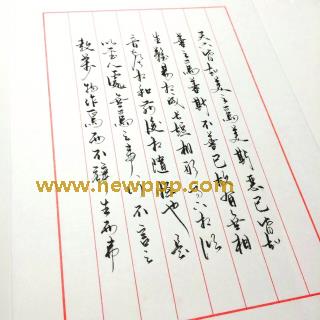 天下皆知美之為美斯惡已皆知
善之為善斯不善已故有無相
生難易相成長短相形高下相
音聲相和前後相隨恆也是
以聖人處無為之事行不言之
教萬物作焉而不辭生而弗
www.newppp.com